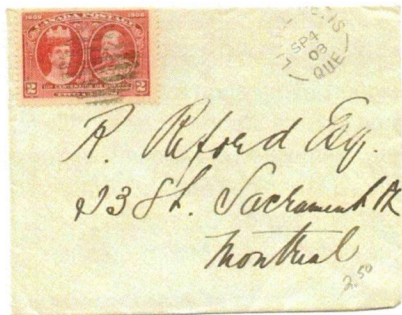 1608 CANADA POSTAGE 1908
2 CENTS 2
SP 4
08
QUE
R. Reford Esq.
23 St. Sacrament St
Montreal
2.50